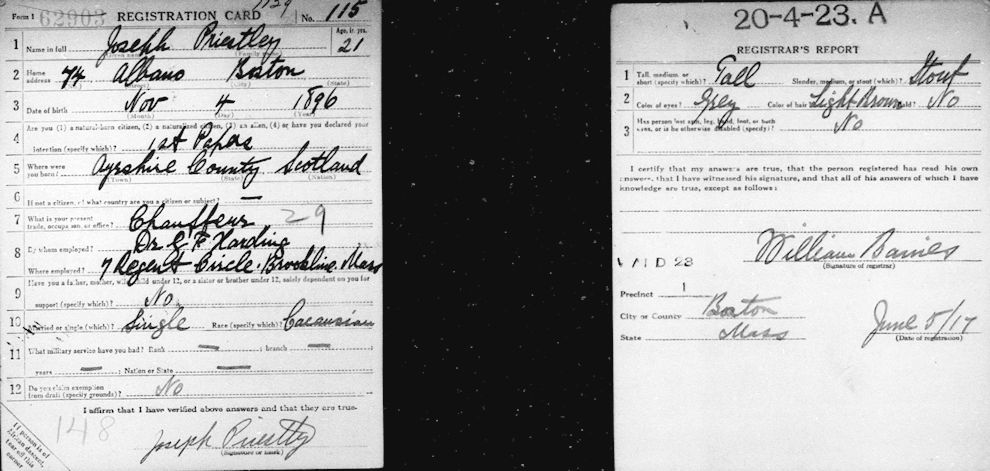 Form 1 62903 REGISTRATION CARD 1129 No. 115
1 Name in full Joseph Priestley Age, in yrs. 21
(Given name) (Family name)
2 Home address 74 Albano Boston
(No.) (Street) (City) (State)
3 Date of birth Nov 4 1896
(Month) (Day) (Year)
4 Are you (1) a natural-born citizen, (2) a naturalized citizen, (3) an alien, (4) or have you declared your
intention (specify which)? 1st Papers
5 Where were you born? Ayrshire County Scotland
(Town) (State) (Nation)
6 If not a citizen, of what country are you a citizen or subject?
7 What is your present trade, occupation, or office? Chauffeur 29
8 By whom employed? Dr. G F Harding
Where employed? 7 Regent Circle. Brookline Mass
9 Have you a father, mother, wife, child under 12, or a sister or brother under 12, solely dependent on you for
support (specify which)? No
10 Married or single (which)? Single Race (specify which)? Cacausian
11 What military service have you had? Rank — ; branch —
years — ; Nation or State —
12 Do you claim exemption from draft (specify grounds)? No
I affirm that I have verified above answers and that they are true.
148
Joseph Priestly
(Signature or mark)
If person is of African descent, tear off this corner
20-4-23. A
REGISTRAR'S REPORT
1 Tall, medium, or short (specify which)? Tall Slender, medium, or stout (which)? Stout
2 Color of eyes? Grey Color of hair? Light Brown Bald? No
3 Has person lost arm, leg, hand, foot, or both eyes, or is he otherwise disabled (specify)? No
I certify that my answers are true, that the person registered has read his own
answers, that I have witnessed his signature, and that all of his answers of which I have
knowledge are true, except as follows:
William Barnes
(Signature of registrar)
WARD 23
Precinct 1
City or County Boston
State Mass
June 5/17
(Date of registration)